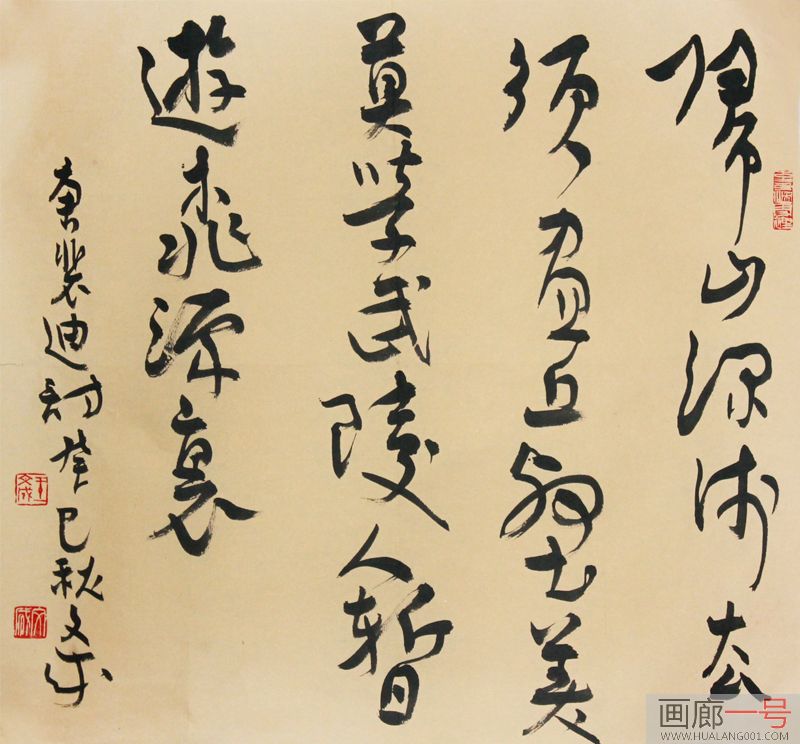 歸山深浅去
須盡丘壑美
莫學武陵人暫
遊桃源裏
唐裴迪詩癸巳秋文成
画廊一号
WWW.HUALANG001.COM